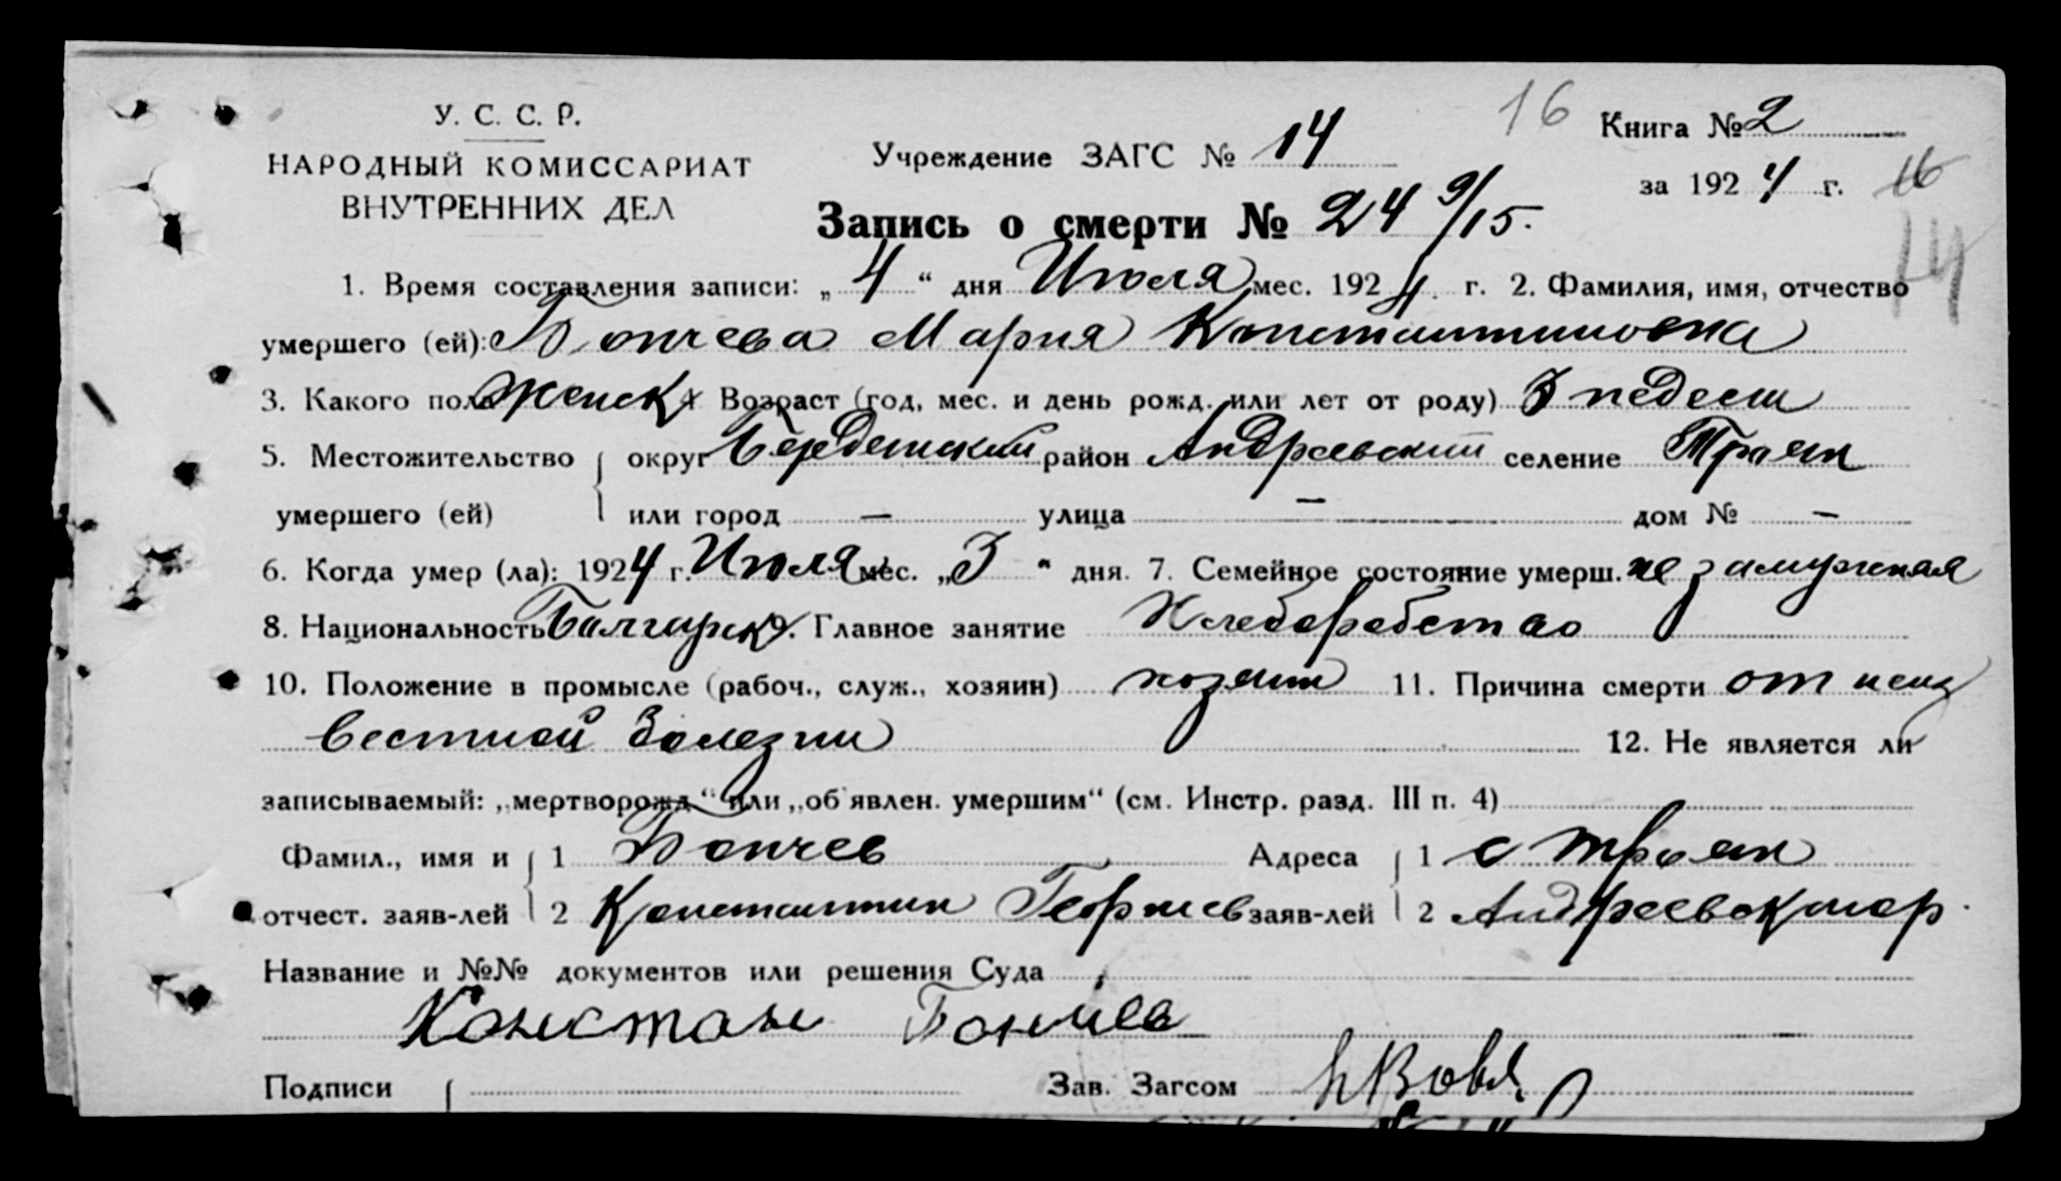 У. С. С. Р.
НАРОДНЫЙ КОМИССАРИАТ
ВНУТРЕННИХ ДЕЛ
Учреждение ЗАГС № 14
16
Книга № 2
за 1924 г. 16
14
Запись о смерти № 24 9/15.
1. Время составления записи: „4“ дня Июля мес. 1924 г. 2. Фамилия, имя, отчество
умершего (ей): Бончева Мария Константиновна
3. Какого пола Женск 4 Возраст (год, мес. и день рожд. или лет от роду) 3 недели
5. Местожительство округ Бердянский район Андреевский селение Троян
умершего (ей) или город — улица — дом № —
6. Когда умер (ла): 1924 г. Июля мес. „3“ дня. 7. Семейное состояние умерш. не замужная
8. Национальность Болгарск 9. Главное занятие Хлеборобство
10. Положение в промысле (рабоч., служ., хозяин) хозяин 11. Причина смерти от неиз
вестной болезни 12. Не является ли
записываемый: „мертворожд“ или „об'явлен. умершим“ (см. Инстр. разд. III п. 4)
Фамил., имя и 1 Бончев Адреса 1 с Троян
отчест. заяв-лей 2 Константин Георгиев заяв-лей 2 Андреевск
Название и №№ документов или решения Суда
Констан Бончев
Подписи Зав. Загсом